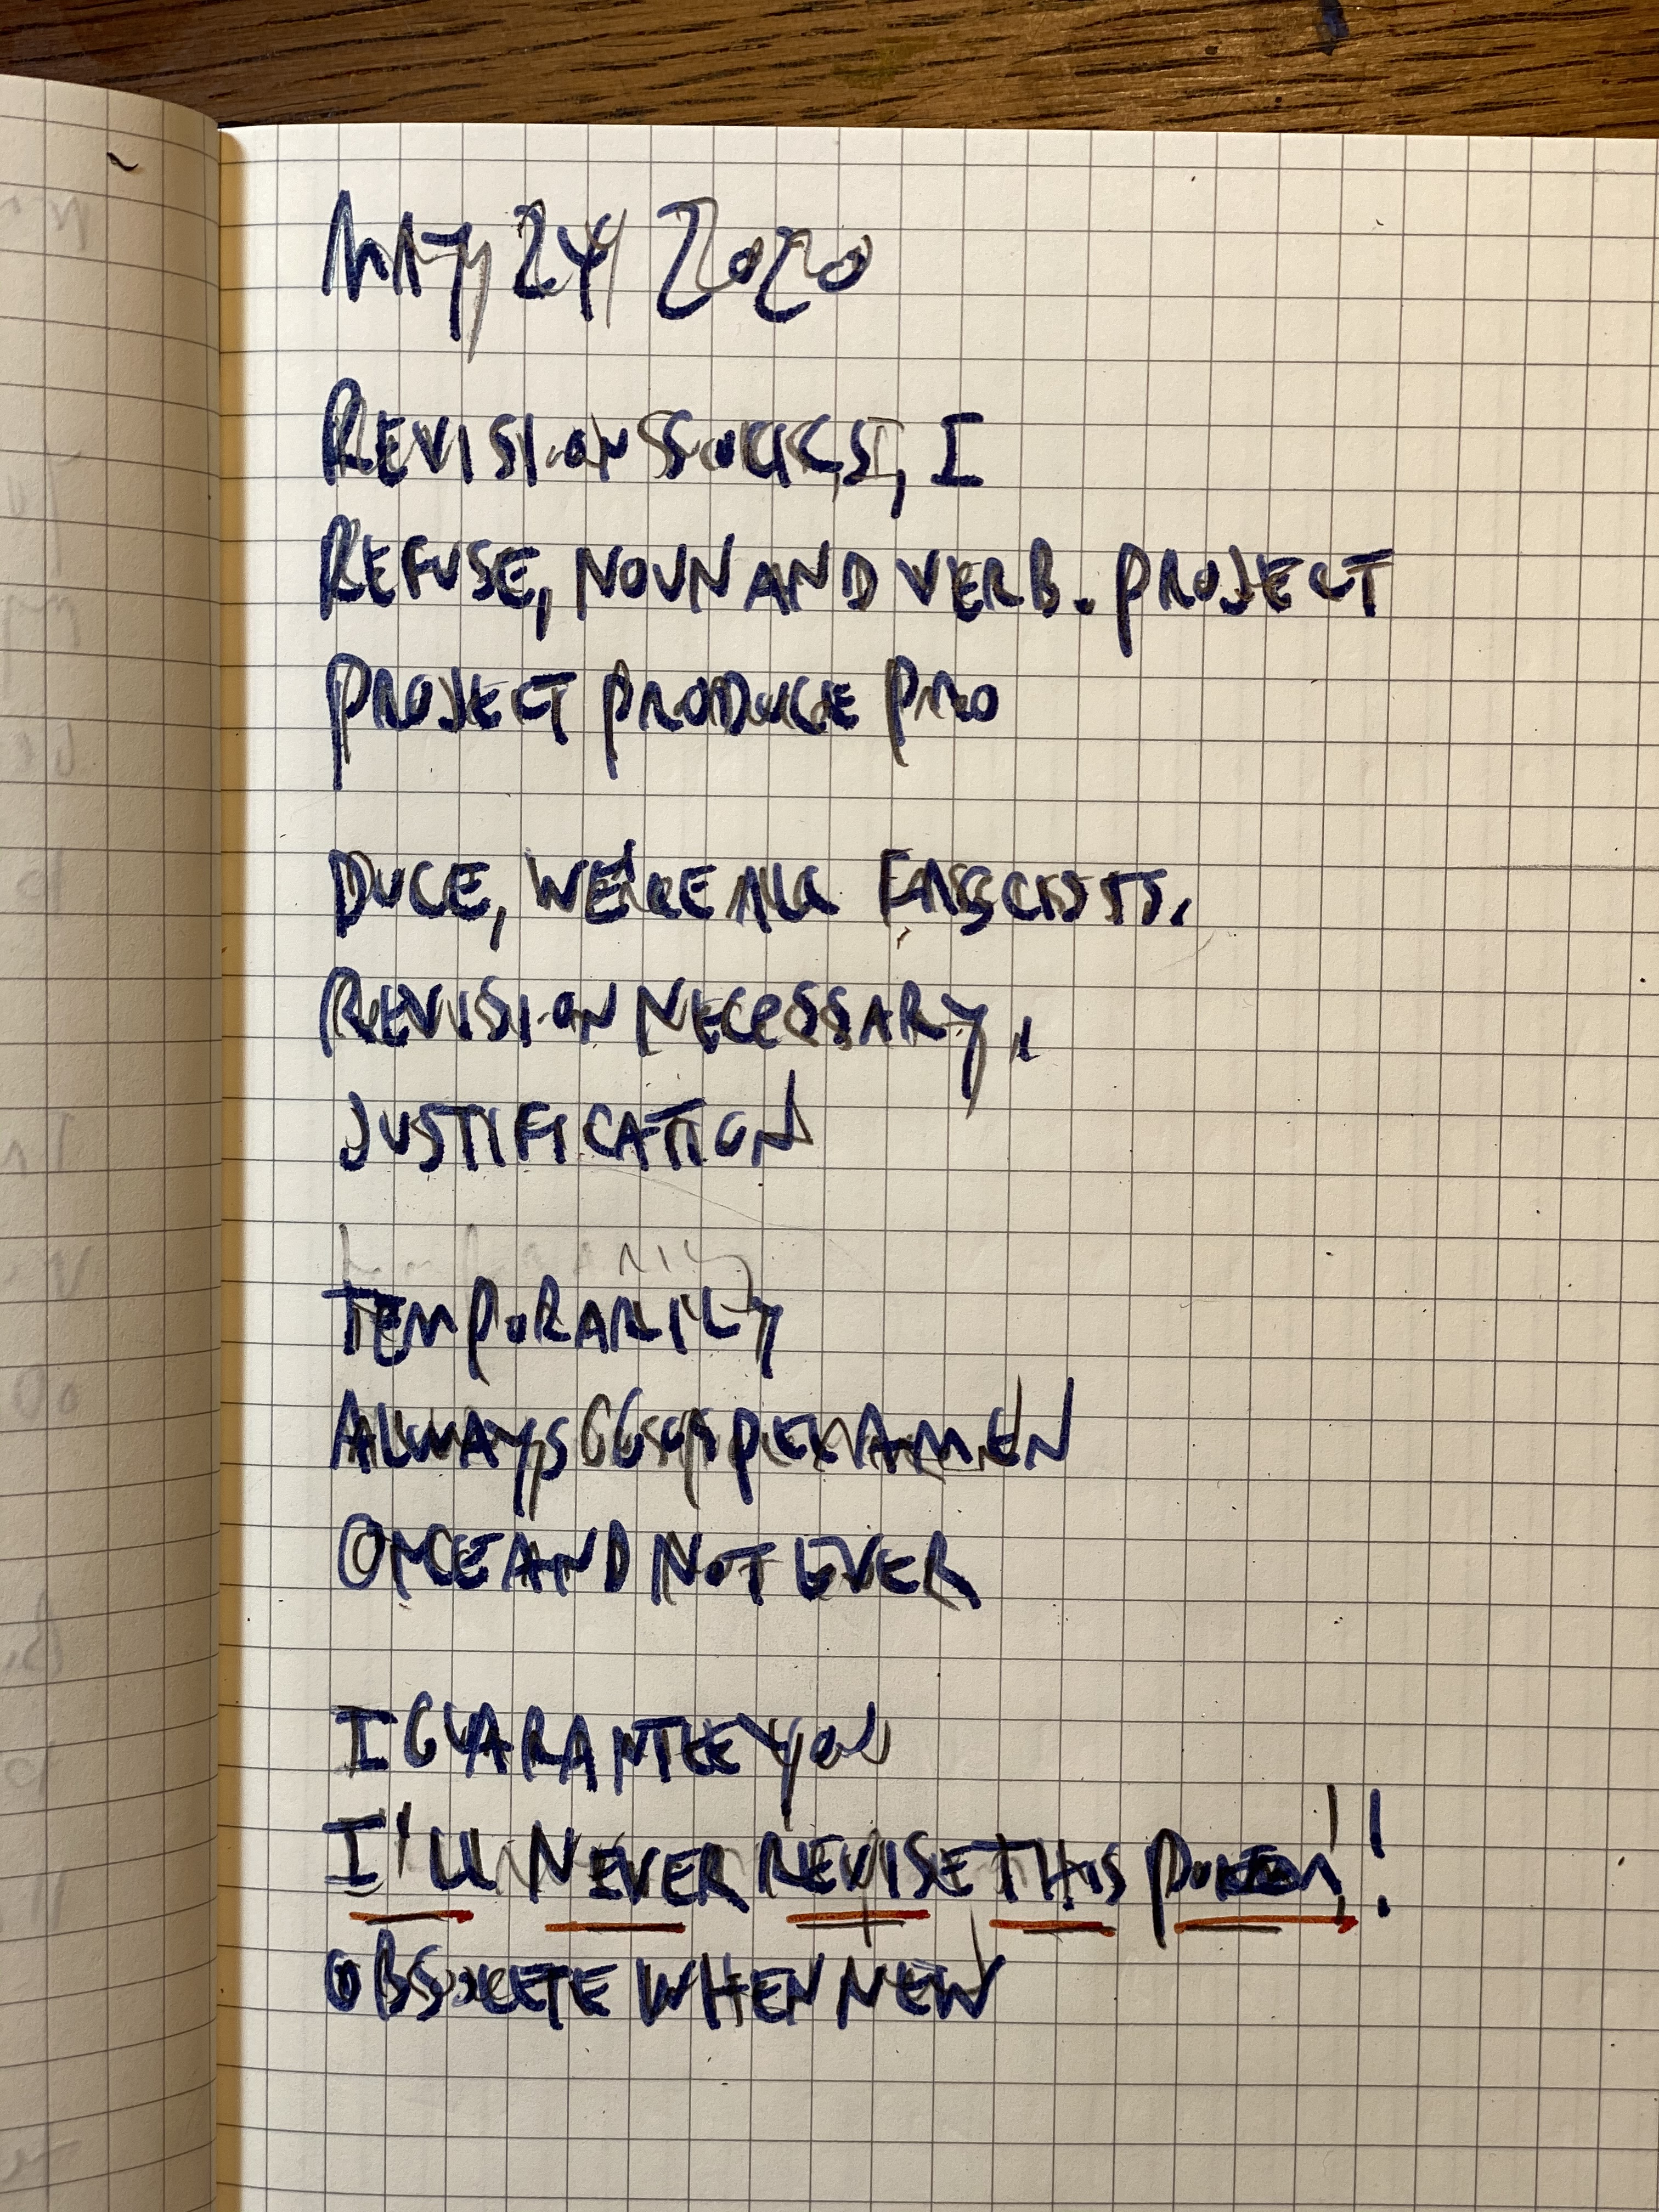 May 24 2020
REVISION SUCKS, I
REFUSE, NOUN AND VERB. PROJECT
PROJECT PRODUCE PRO
DUCE, WE'RE ALL FASCISTS.
REVISION NECESSARY,
JUSTIFICATION
TEMPORARILY
ALWAYS
ONCE AND NOT EVER
I GUARANTEE YOU
I'LL NEVER REVISE THIS POEM!
OBSOLETE WHEN NEW